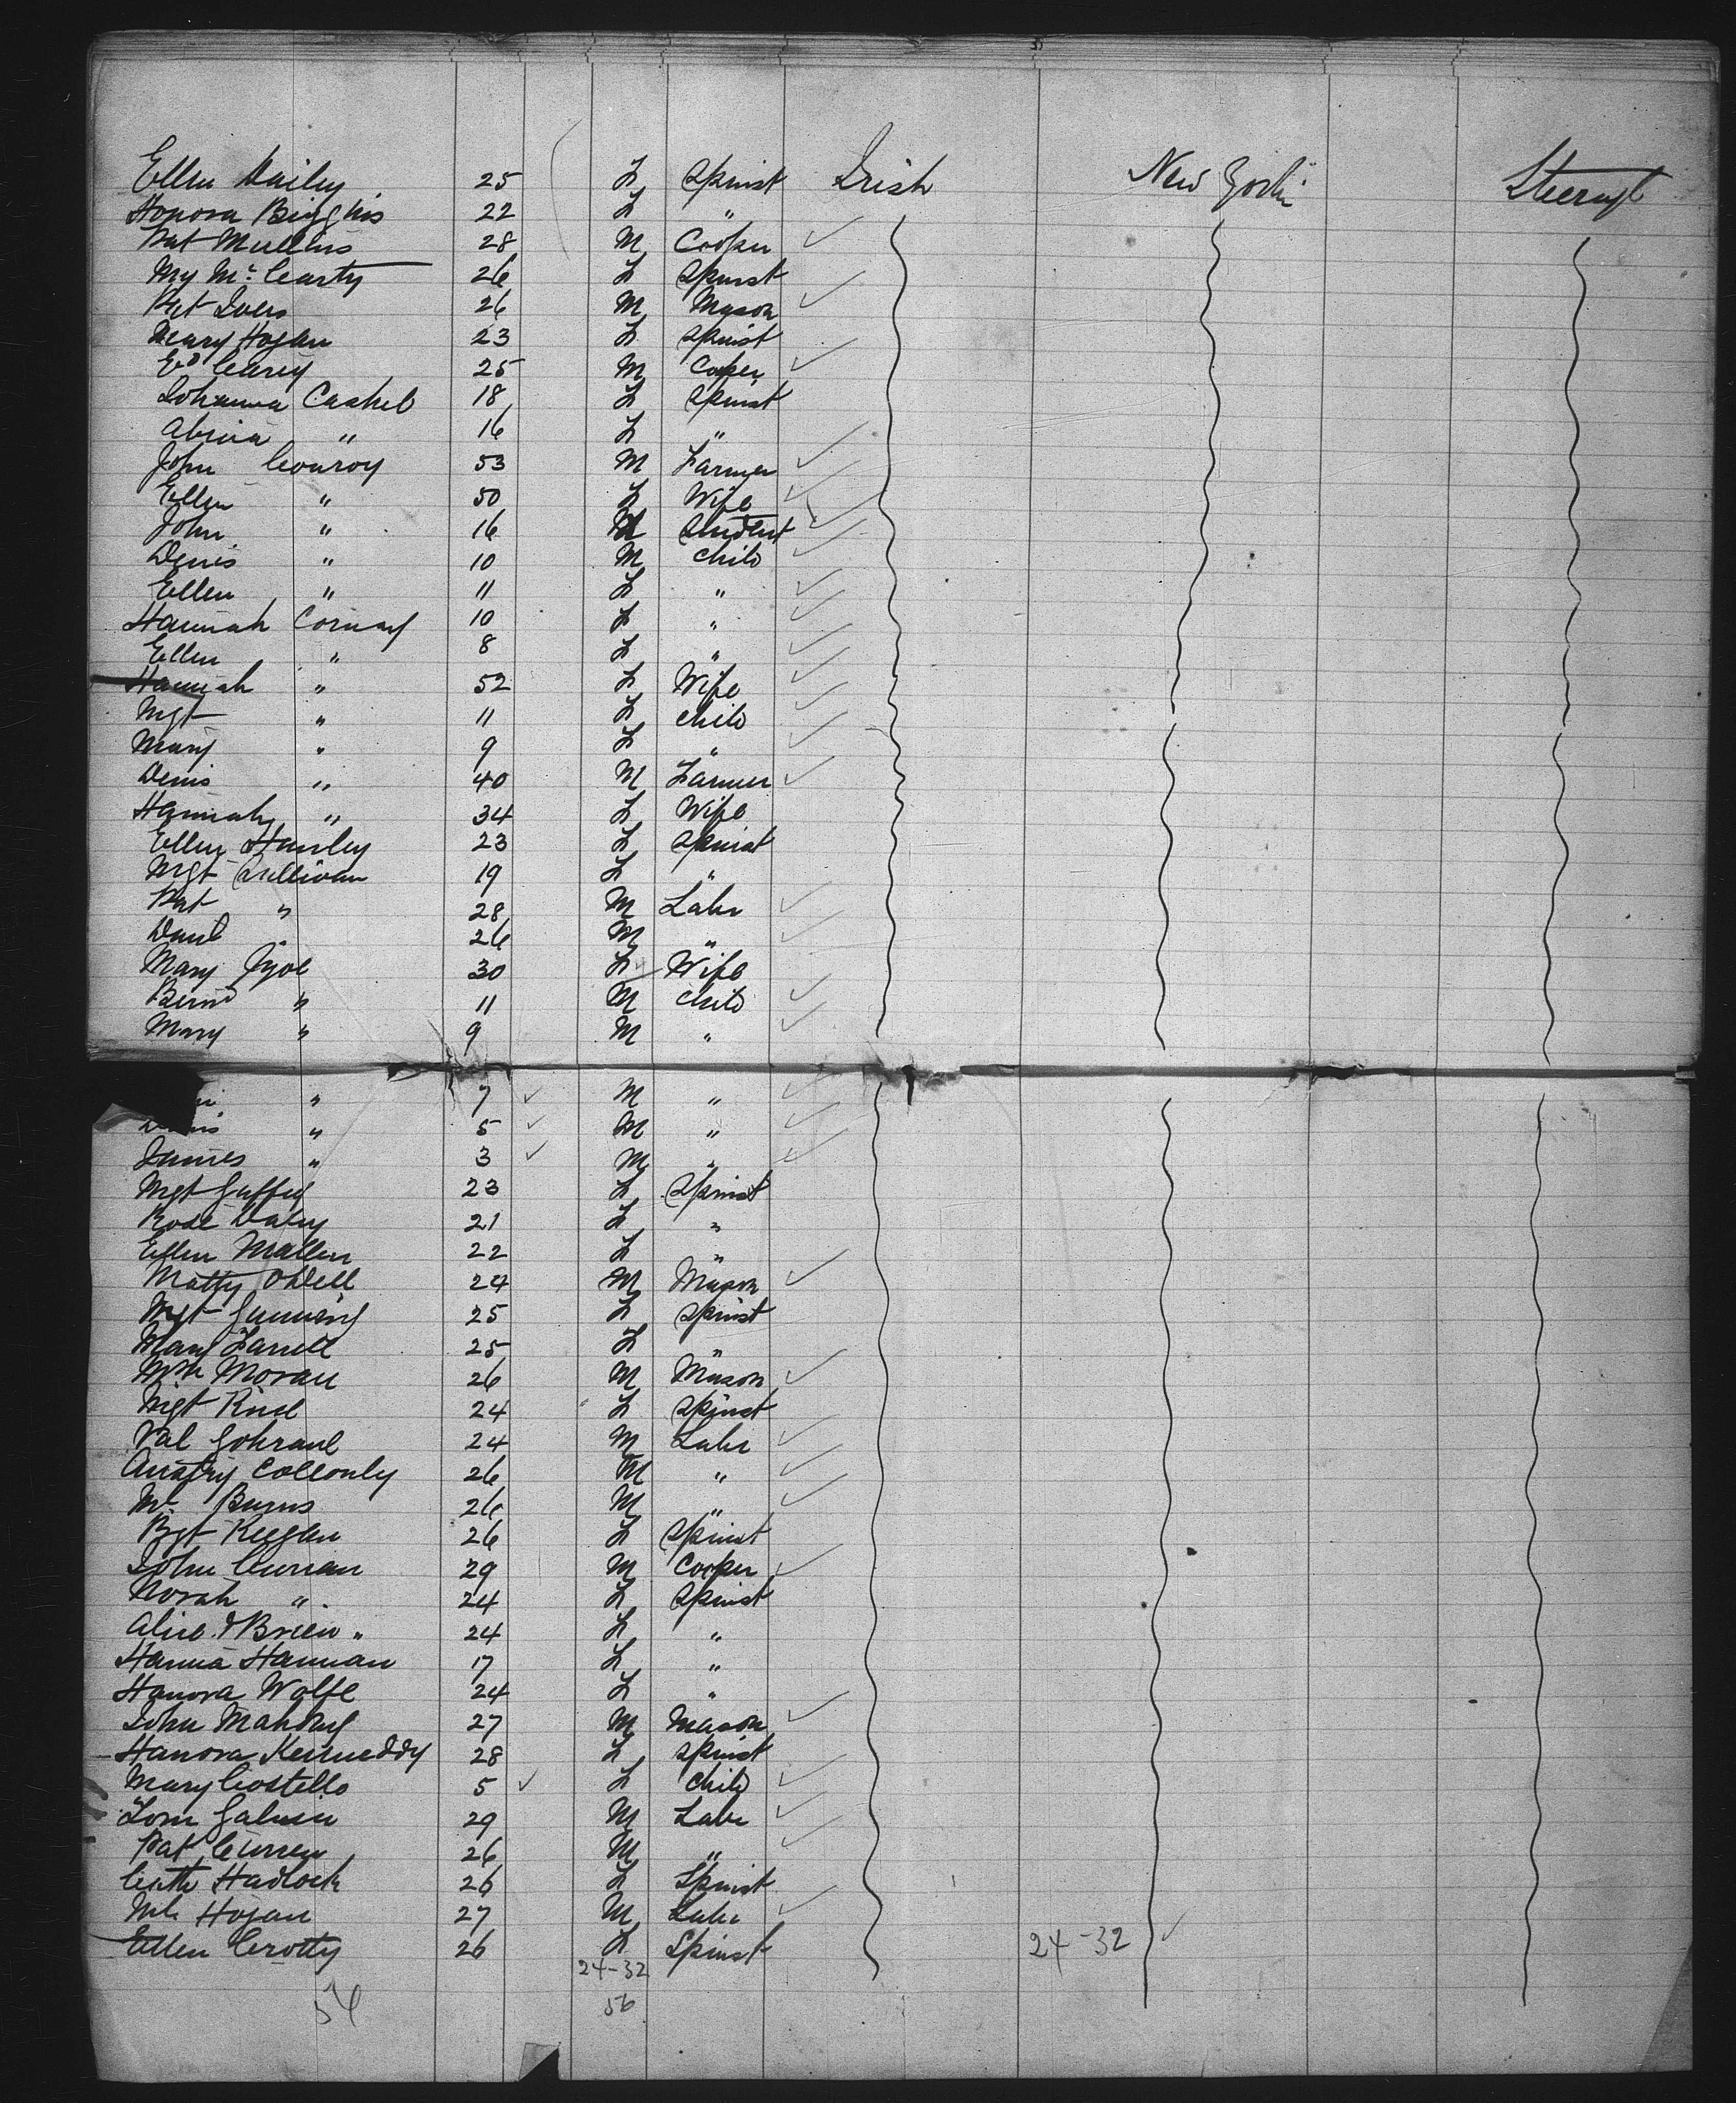 Ellen Dailey 25 F Spinst Irish New York Steerage
Honora 22 F "
Pat Mullins 28 M Cooper
My McCarty 26 F Spinst
Pat Ivers 26 M Mason
Mary Hogan 23 F Spinst
Ed Carey 25 M Cooper
Johanna Cashel 18 F Spinst
" 16 F "
John Conroy 53 M Farmer
Ellen " 50 F Wife
John " 16 M Student
Denis " 10 M Child
Ellen " 11 F "
Hannah 10 F "
Ellen " 8 F "
Hannah " 52 F Wife
Mgt " 11 F Child
Mary " 9 F "
Denis " 40 M Farmer
Hannah " 34 F Wife
Ellen Hanley 23 F Spinst
Mgt Sullivan 19 F "
Pat " 28 M Labr
" 26 M "
Mary 30 F Wife
Bernd " 11 M Child
Mary " 9 M "
" 7 M "
" 5 M "
James " 3 M "
Mgt 23 F Spinst
Rose Daly 21 F "
Ellen Mallen 22 F "
Matty Odell 24 M Mason
Mgt Gunning 25 F Spinst
Mary Farrell 25 F "
Wm Moran 26 M Mason
Mgt 24 F Spinst
24 M Labr
26 M "
Ml Burns 26 M "
Bgt Keegan 26 F Spinst
John Curran 29 M Cooper
Norah " 24 F Spinst
Alice O'Brien " 24 F "
Hanna Hannan 17 F "
Hanora Wolfe 24 F "
John Mahony 27 M Mason
Hanora Kenneddy 28 F Spinst
Mary Costello 5 F Child
Tom Galvin 29 M Labr
Pat Curren 26 M "
Cath Hadlock 26 F Spinst
Ml Hogan 27 M Labr
Ellen Crotty 26 F Spinst 24-32
24-32
56 56